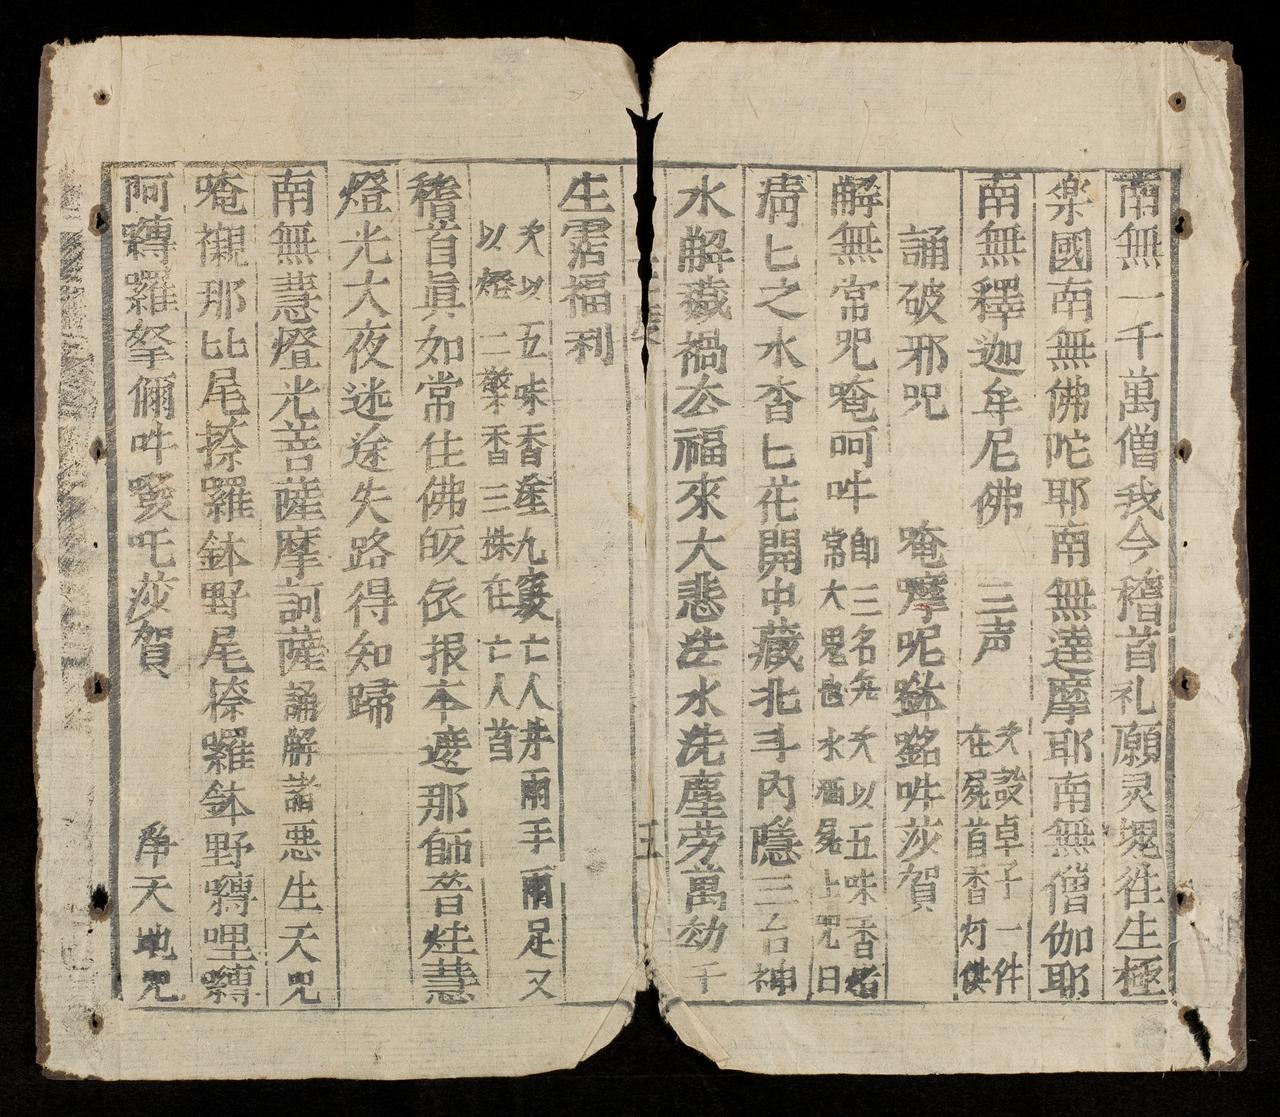 南無一千萬僧我今稽首礼願灵魂徃生極
楽國南無佛陀耶南無達摩耶南無僧伽耶
南無釋迦牟尼佛 三声 次設卓子一件
在屍首香灯供
誦破邪咒 唵摩呢鉢銘吽莎賀
解無常咒唵呵吽 即三名無
常大鬼也 次以五味香
水洒屍上咒曰
清匕之水杳匕花開中藏北斗內隱三台神
水解藏禍厺福來大悲法水洗塵劳萬劫千
生霑福利
五
次以五味香塗九竅亡人并兩手兩足又
以燈二檠香三株在亡人首
稽首眞如常住佛皈依报本遮那師昔炷慧
燈光大夜迷途失路得知歸
南無慧燈光菩薩摩訶薩 誦解諸悪生天咒
唵襯那比尾捺羅鉢野尾捺羅鉢野囀哩囀
阿囀羅拏儞吽癹吒莎賀 净天地咒